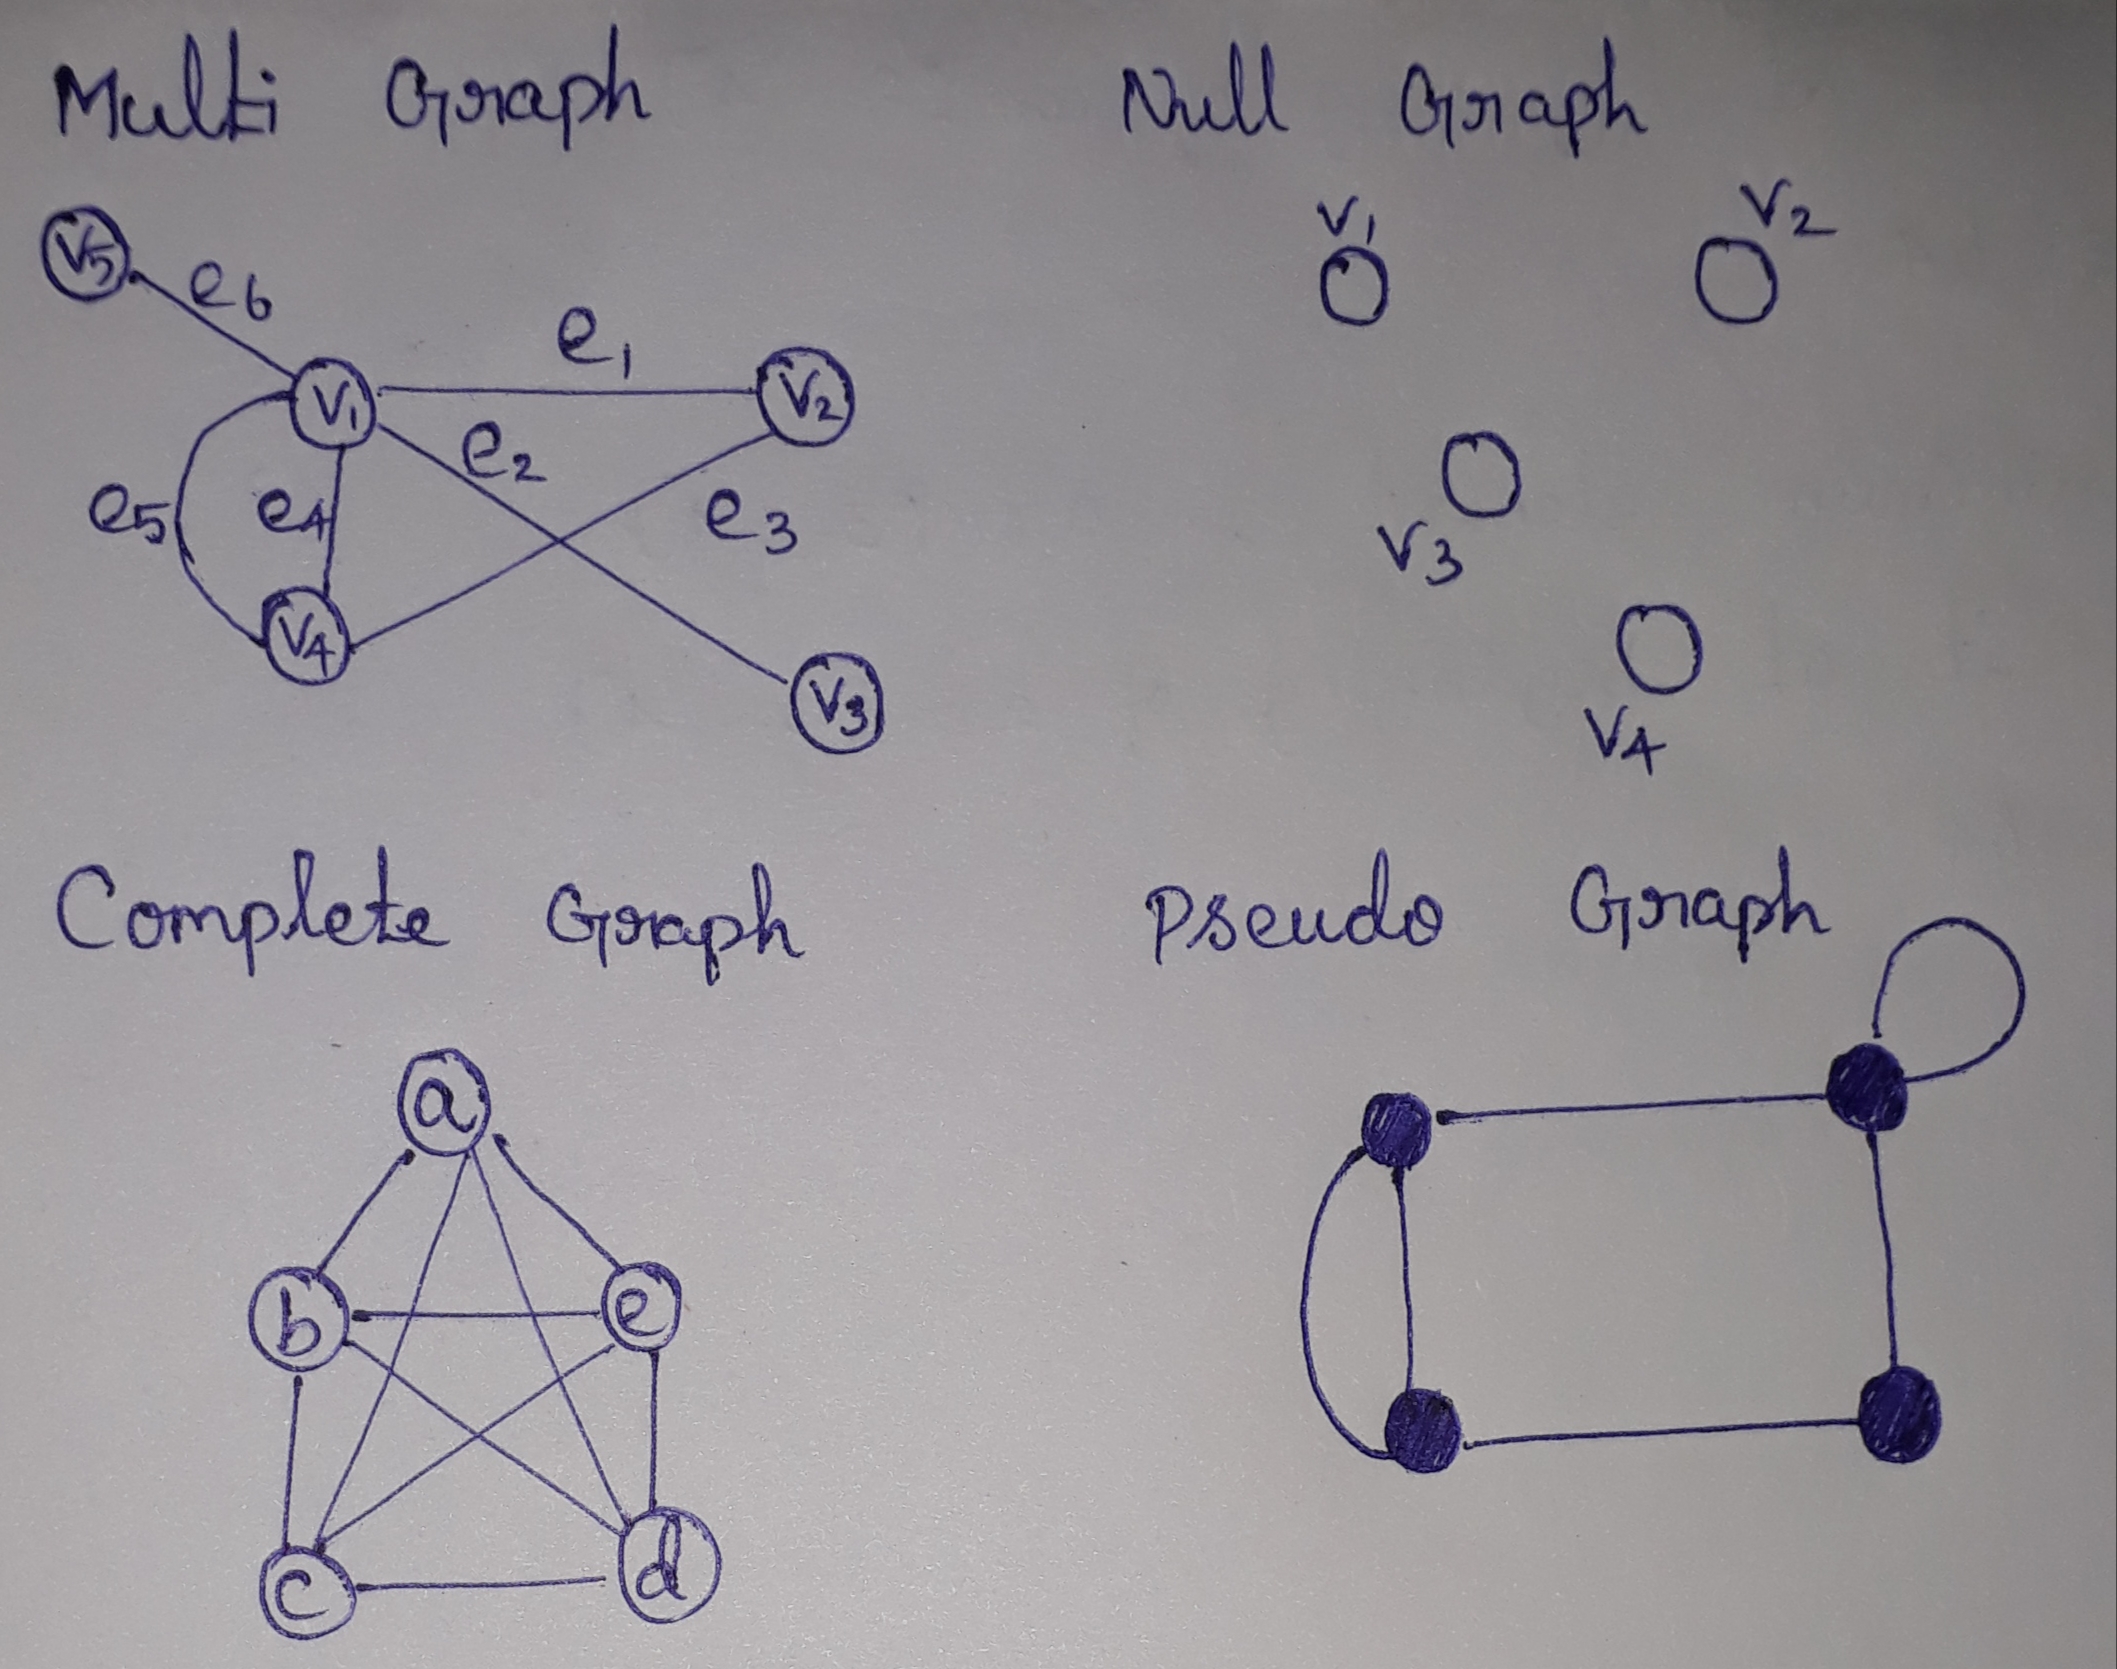 Multi Graph
V5
e6
e1
V1
V2
e2
e5
e4
e3
V4
V3
Null Graph
V1
V2
V3
V4
Complete Graph
a
b
e
c
d
Pseudo Graph